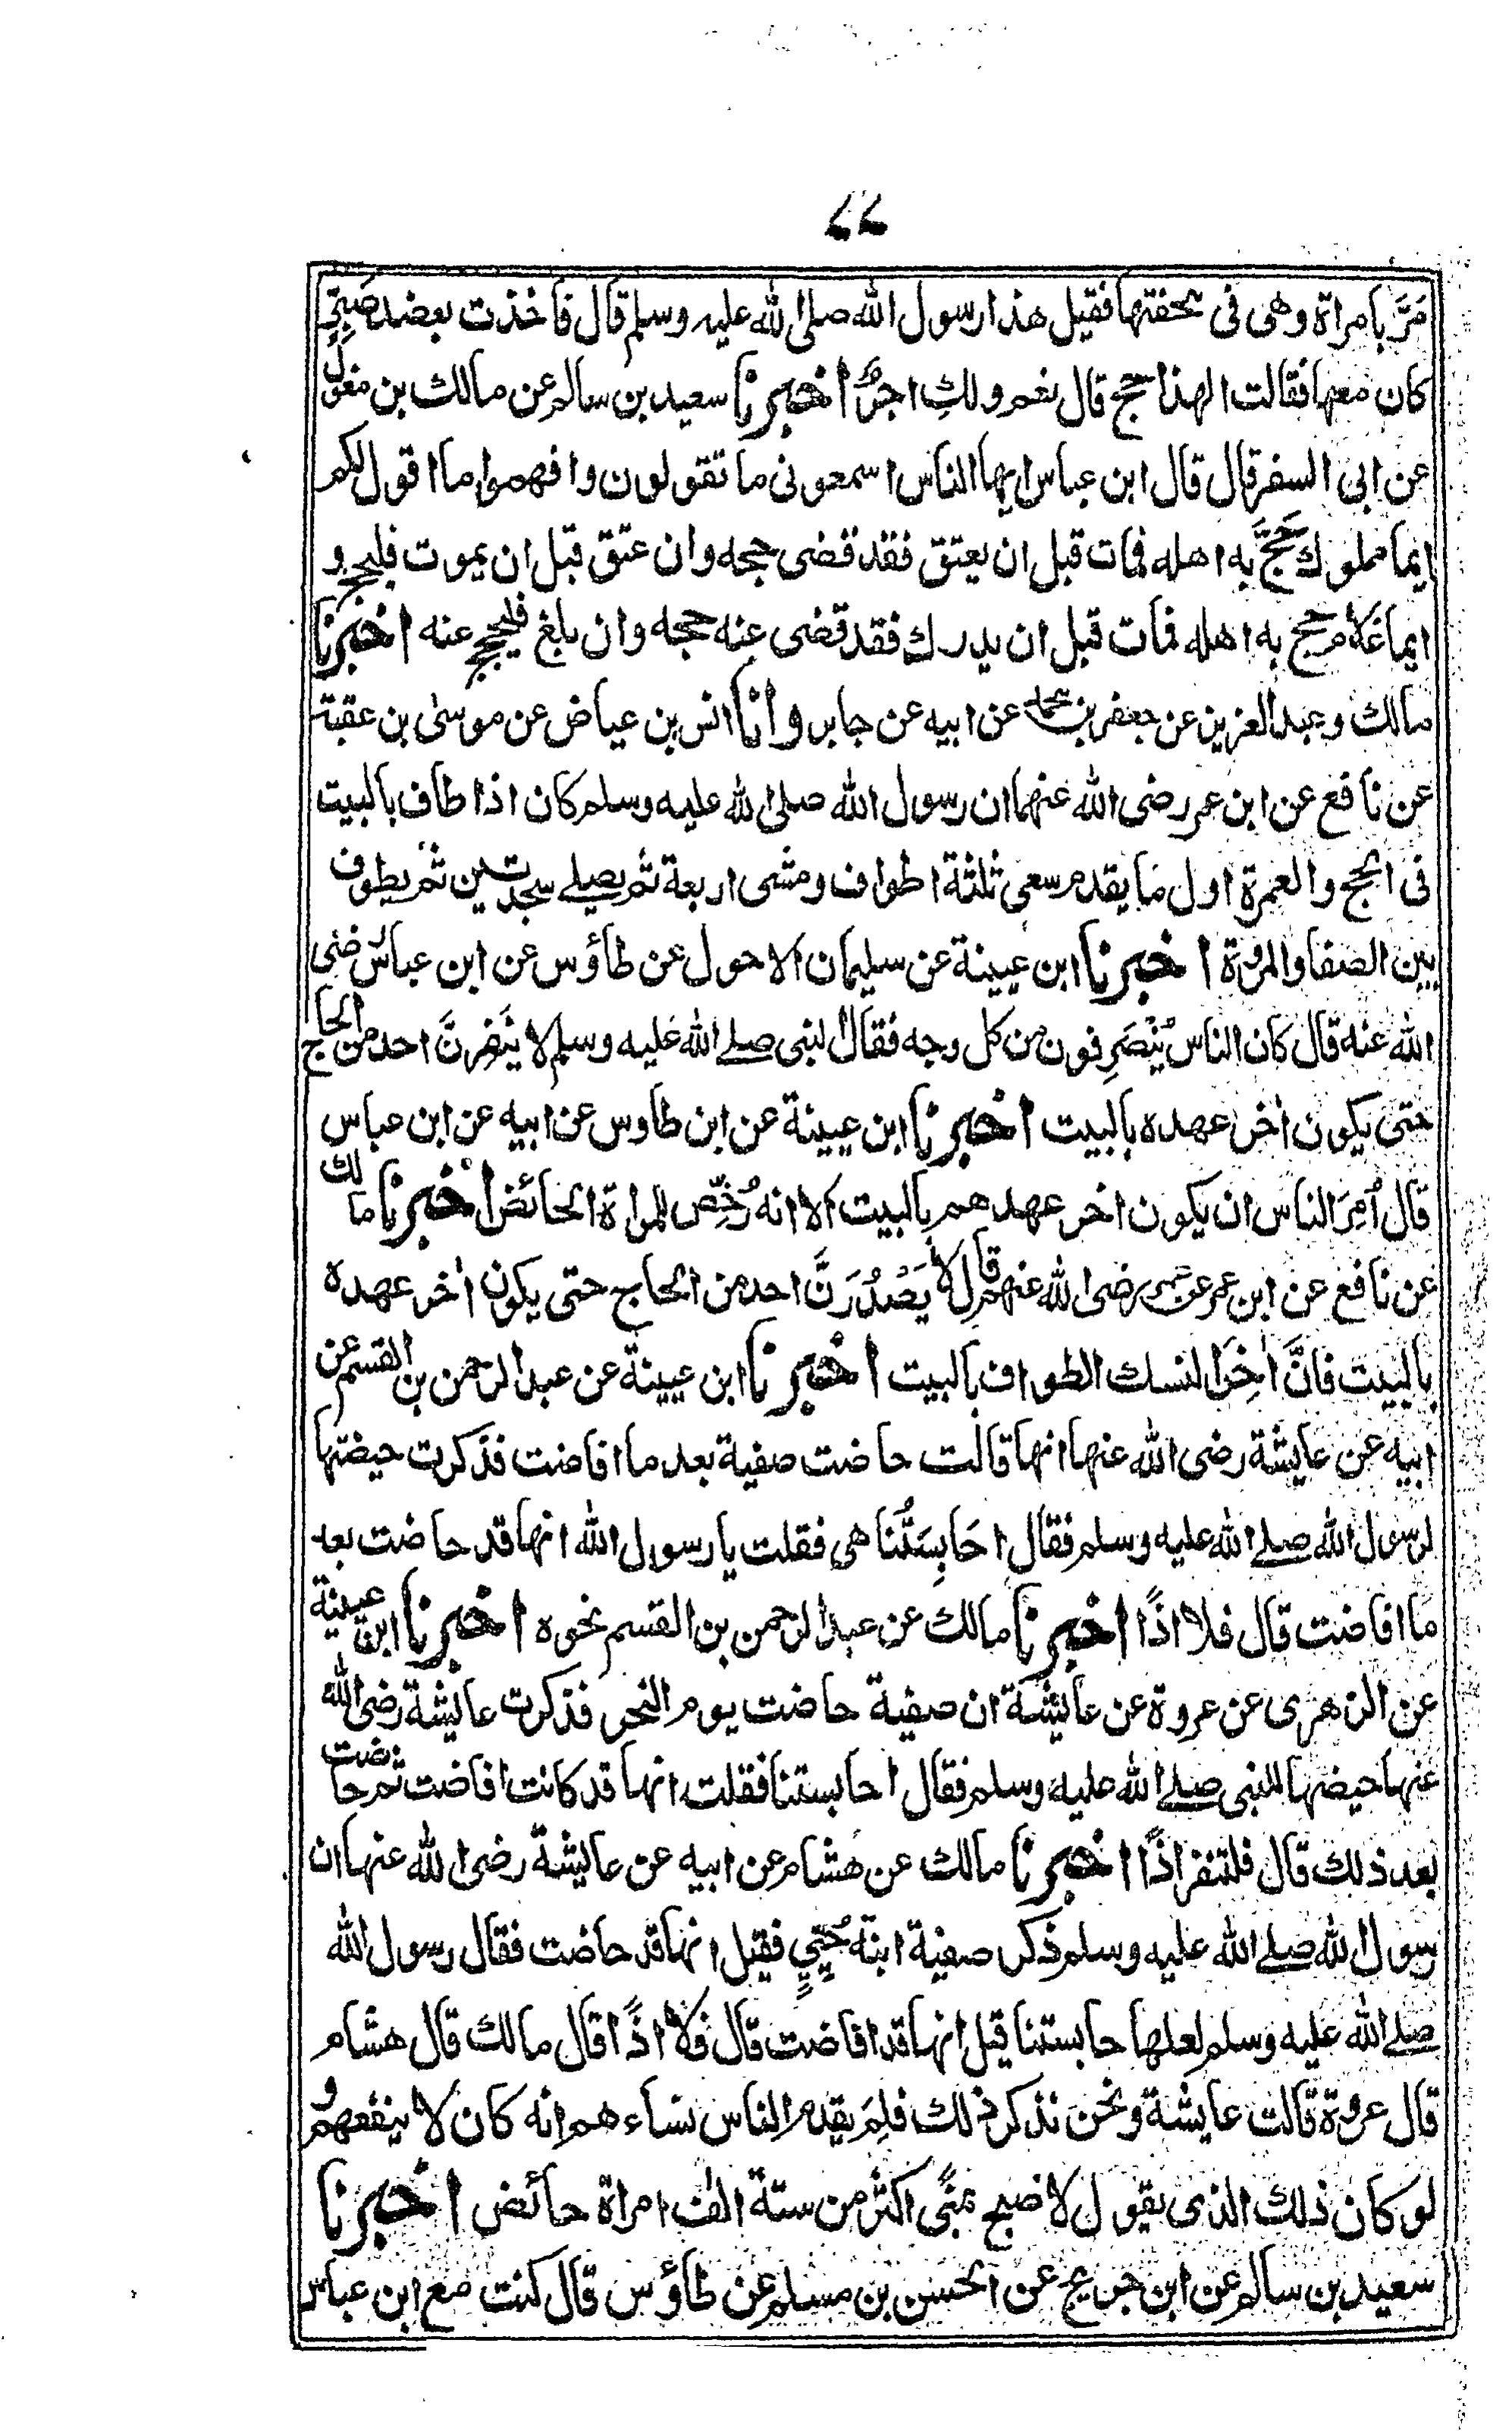 ٧٧
مَرَّ بامراة وهى فى محفتها فقيل هذا رسول الله صلى الله عليه وسلم قال فاخذت بعضد صَبِيٍّ
كان معها فقالت الهذا حج قال نعم ولكِ اجرٌ اخبرنا سعيد بن سالم عن مالك بن مغول
عن ابى السفر قال قال ابن عباس ايها الناس اسمعونى ما تقولون وافهموا ما اقول لكم
ايما مملوك حَجَّ به اهله فمات قبل ان يعتق فقد قضى حجه وان عتق قبل ان يموت فليحج و
ايما غلام حج به اهله فمات قبل ان يدرك فقد قضى عنه حجه وان بلغ فليحج عنه اخبرنا
مالك وعبد العزيز عن جعفر بن محمد عن ابيه عن جابر و انا انس بن عياض عن موسى بن عقبة
عن نافع عن ابن عمر رضى الله عنهما ان رسول الله صلى الله عليه وسلم كان اذا طاف بالبيت
فى الحج والعمرة اول ما يقدم سعى ثلثة اطواف ومشى اربعة ثم يصلے سجدتين ثم يطوف
بين الصفا والمروة اخبرنا ابن عيينة عن سليمان الاحول عن طاؤس عن ابن عباس رضى
الله عنه قال كان الناس يَنْصَرِفون من كل وجه فقال النبى صلے الله عليه وسلم لا يَنْفِرنَّ احد من الحاج
حتى يكون اٰخر عهده بالبيت اخبرنا ابن عيينة عن ابن طاوس عن ابيه عن ابن عباس
قال اُمِرَ الناس ان يكون اخر عهدهم بالبيت الا انه رُخِّص للمراة الحائض اخبرنا مالك
عن نافع عن ابن عمر عن عمر رضى الله عنهم قال لا يَصْدُرَنَّ احد من الحاج حتى يكون اٰخر عهده
بالبيت فانَّ اٰخِرَ النسك الطواف بالبيت اخبرنا ابن عيينة عن عبد الرحمن بن القسم عن
ابيه عن عايشة رضى الله عنها انها قالت حاضت صفية بعد ما افاضت فذكرت حيضتها
لرسول الله صلے الله عليه وسلم فقال احَابِسَتُنا هى فقلت يا رسول الله انها قد حاضت بعد
ما افاضت قال فلا اذًا اخبرنا مالك عن عبد الرحمن بن القسم نحوه اخبرنا ابن عيينة
عن الزهرى عن عروة عن عايشة ان صفية حاضت يوم النحر فذكرت عايشة رضى الله
عنها حيضها للنبى صلے الله عليه وسلم فقال احابستنا فقلت انها قد كانت افاضت ثم حاضت
بعد ذلك قال فلتنفر اذًا اخبرنا مالك عن هشام عن ابيه عن عايشة رضى الله عنها ان
رسول الله صلے الله عليه وسلم ذكر صفية ابنة حُيَيٍّ فقيل انها قد حاضت فقال رسول الله
صلے الله عليه وسلم لعلها حابستنا قيل انها قد افاضت قال فلا اذًا قال مالك قال هشام
قال عروة قالت عايشة ونحن نذكر ذلك فلِمَ يقدم الناس نساءهم انه كان لا ينفعهم و
لو كان ذلك الذى يقول لاضبح بمنًى اكثر من ستة الف امراة حائض اخبرنا
سعيد بن سالم عن ابن جريج عن الحسن بن مسلم عن طاؤس قال كنت مع ابن عباس